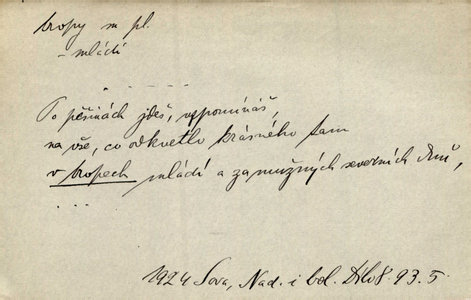 tropy m pl.
– mládí
. . . . . .
Po pěšinách jdeš, vzpomínáš,
na vše, co odkvetlo krásného tam
v tropech mládí a zamužných severních dnů,
. . .
1924 Sova, Nad. i bol. Dílo 8. 93. 5.